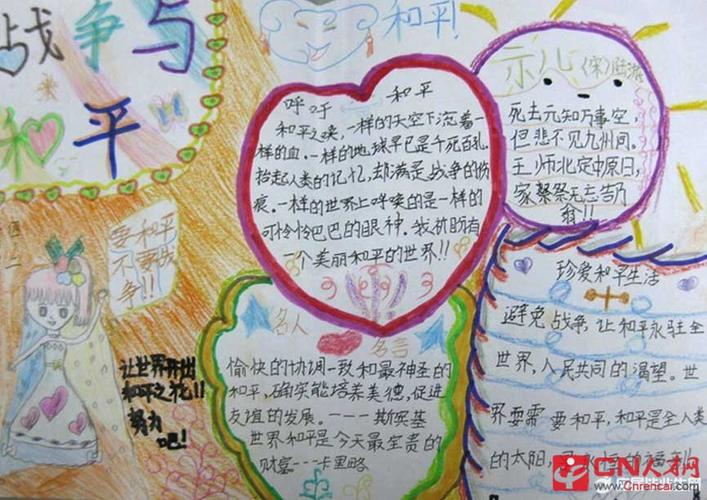 战争与
和平
和平!
呼吁 和平
和平之唤,一样的天空下流着一
样的血。一样的地球早已是千死百孔,
拾起人类的记忆,却满是战争的伤
痕。一样的世界上呼唤的是一样的
可怜巴巴的眼神。我祈盼有
一个美丽和平的世界!!
示儿 (宋)陆游
死去元知万事空,
但悲不见九州同。
王师北定中原日,
家祭无忘告乃
翁!!
要和平
不要战
争!!
让世界开出
和平之花!!
努力
吧!
名人
名言
愉快的协调一致和最神圣的
和平,确实能培养美德,促进
友谊的发展。----斯宾基
世界和是今天最宝贵的
财富---卡里略
珍爱和平生活
避免战争,让和平永驻全
世界,人民共同的渴望。世
界要需要和平,和平是全人类
的太阳,
CN人才网
www.Cnrencai.com
应届毕业生网